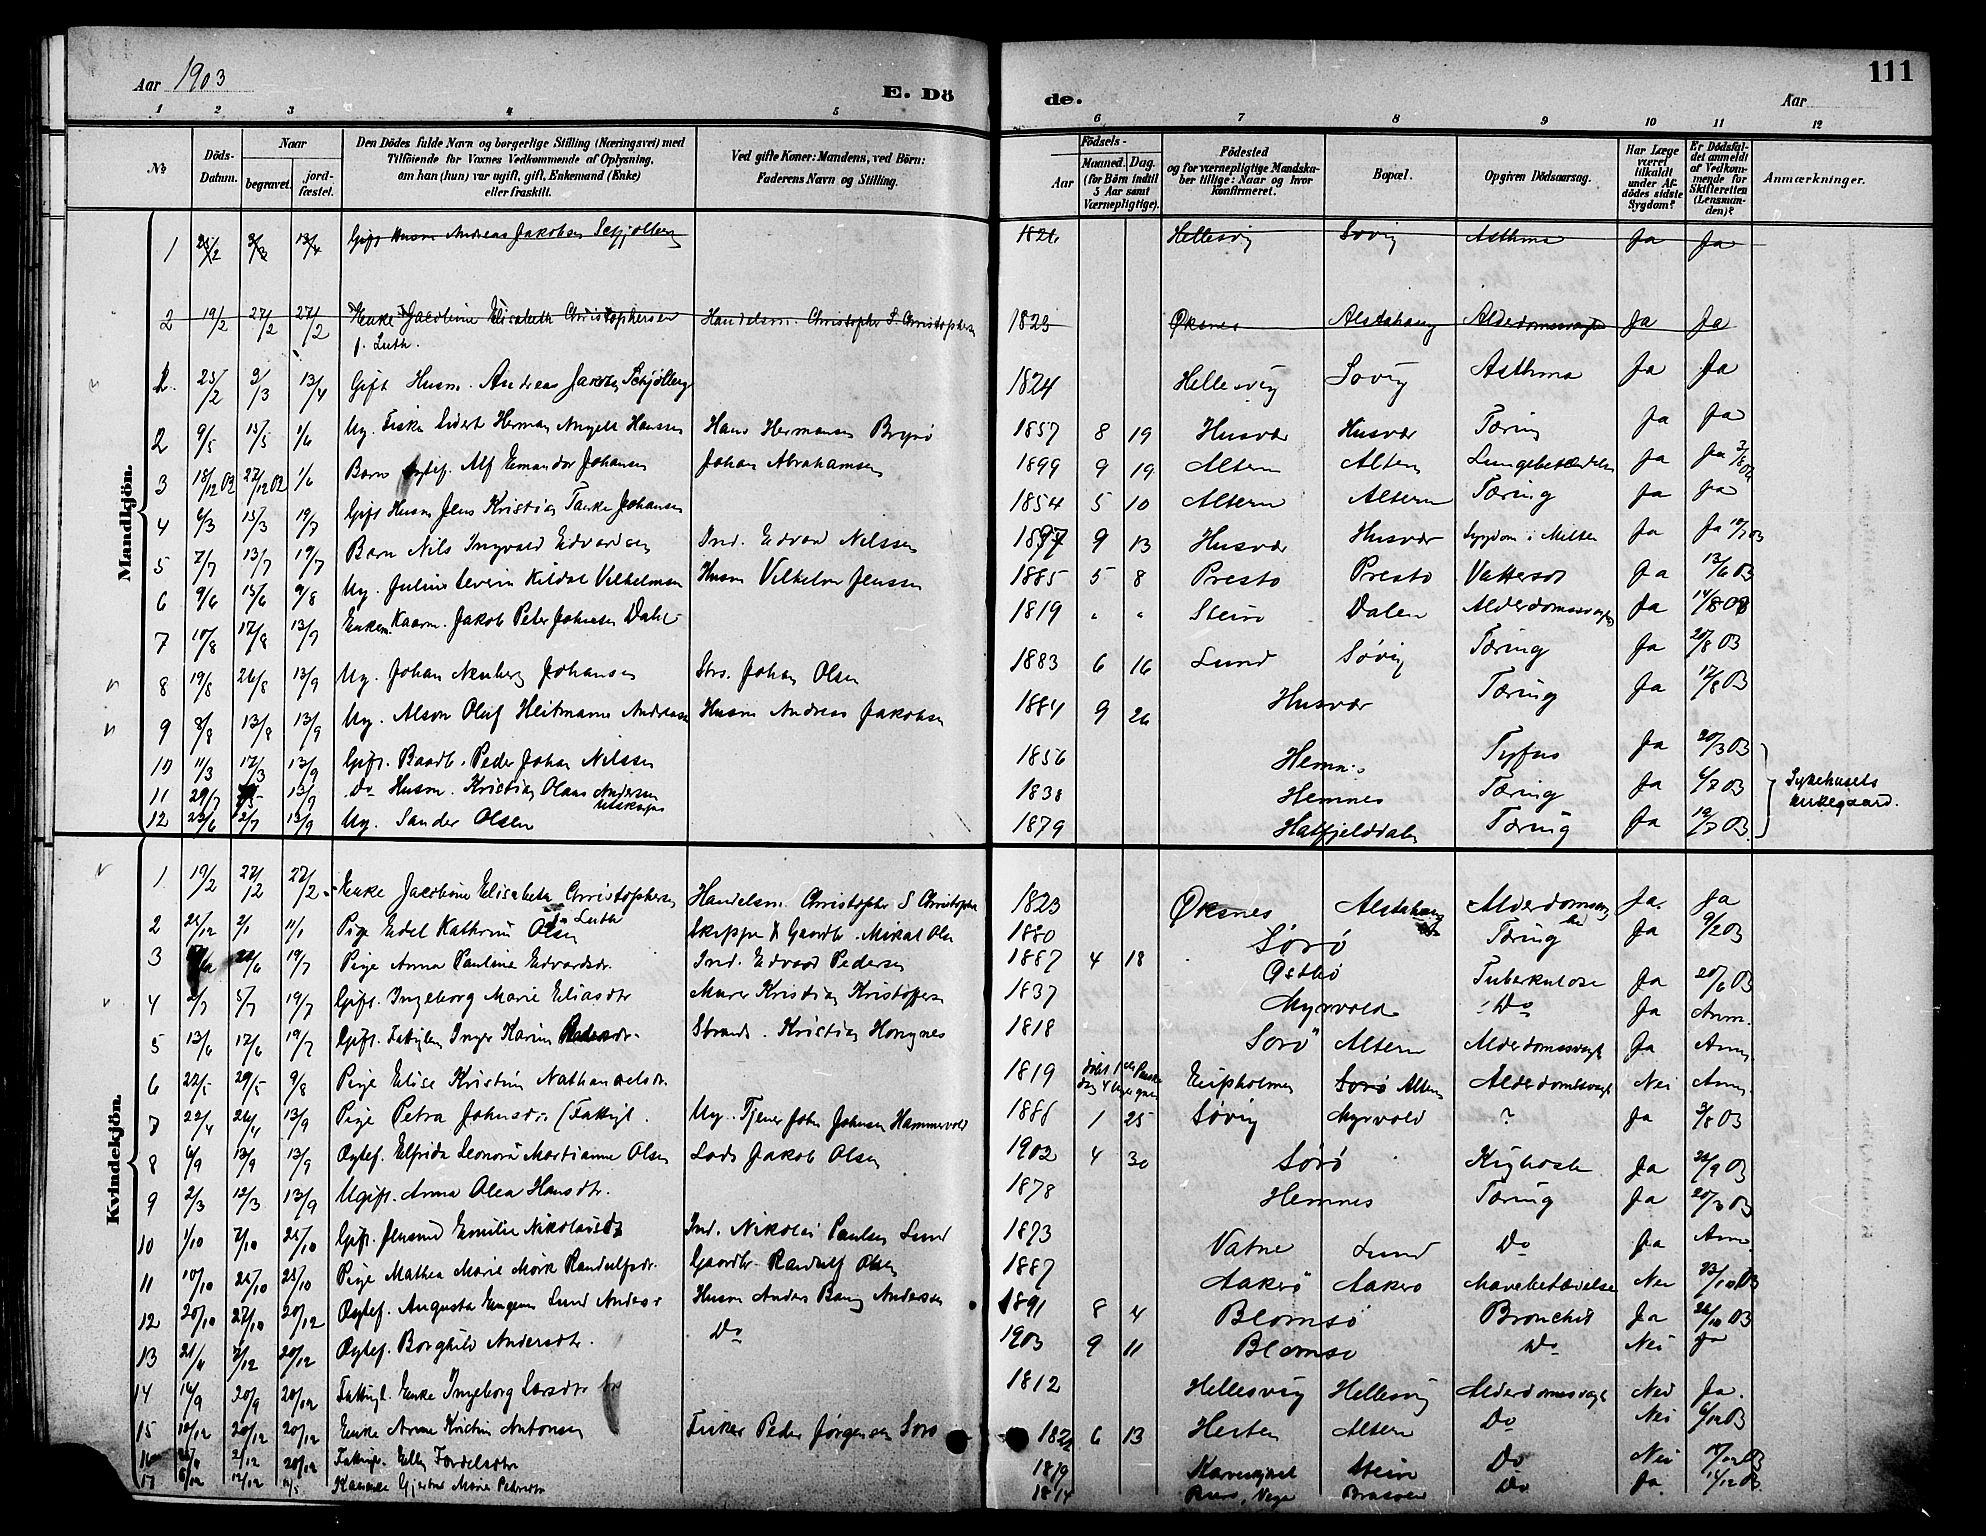 Aar 1903
E. Dö de.
Aar
111
1 2 3 4 5 6 7 8 9 10 11 12
No
Döds-Datum.
Naar
begravet.
jord-fæstet.
Den Dödes fulde Navn og borgerlige Stilling (Næringsvei) med
Tilföiende for Voxnes Vedkommende af Oplysning,
om han (hun) var ugift, gift, Enkemand (Enke)
eller fraskilt.
Ved gifte Koner: Mandens, ved Börn:
Faderens Navn og Stilling.
Födsels-
Aar
Maaned. Dag.
(for Börn indtil
5 Aar samt
Værnepligtige).
Födested
og for værnepligtige Mandska-
ber tillige: Naar og hvor
konfirmeret.
Bopæl.
Opgiven Dödsaarsag.
Har Læge
været
tilkaldt
under Af-
dödes sidste
Sygdom?
Er Dödsfal-
det anmeldt
af Vedkom-
mende for
Skifteretten
(Lensman-
den)?
Anmærkninger.
Mandkjön.
1 25/2 3/3 13/4 Gift Husm Andreas Jakobsen Schjølberg 1824 Hellesvig Søvig Asthma Ja Ja
2 19/2 27/2 27/2 Enke Jacobine Elisabeth Christophersen Handelsm. Christopher S. Christophersen 1823 Øksnes Alstahaug Alderdomssvaghed Ja Ja
f. Luth.
1. 25/2 3/3 13/4 Gift Husm. Andreas Jakobsen Schjølberg 1824 Hellesvig Søvig Asthma Ja Ja
2 9/5 15/5 1/6 Ug. Fisker Sivert Herman Angell Hansen Hans Hermansen Brysø 1857 8 19 Husvær Husvær Tæring Ja Ja
3 18/12 02 22/12 02 1/6 Barn ægtef. Alf Emandor Johansen Johan Abrahamsen 1899 9 19 Altern Altern Lungebetændelse Ja Ja
4 6/3 15/3 19/7 Gift Husm Jens Kristian Tanke Johansen 1854 5 10 Altern Altern Tæring Ja Ja
5 7/7 13/7 19/7 Barn Nils Ingvald Edvardsen Ind. Edvard Nilssen 1897 9 13 Husvær Husvær Sygdom i Milten Ja Ja
6 9/6 15/6 9/8 Ug. Julius Severin Kildal Vilhelmsen Husm Vilhelm Jenssen 1885 5 8 Presto Presto Vattersot Ja 13/6 03
7 10/8 17/8 13/9 Enkem. Kaarm. Jakob Peter Johnsen Dahl 1819 " " Stein Dalen Alderdomssvaghed Ja 14/8 03
8 19/8 26/8 13/9 Ug. Johan Arnberg Johansen Strs. Johan Olsen 1883 6 16 Lund Søvig Tæring Ja 20/8 03
9 8/8 13/8 13/9 Ug. Alson Oluf Heitmann Andreassen Husm Andreas Jakobsen 1884 9 26 Husvær Tæring Ja 12/8 03
10 11/3 17/3 13/9 Gift. Baadb. Peder Johan Nilssen 1856 Hemnes Tyfus Ja 20/3 03
11 29/7 13/9 Do Husm. Kristian Olaus Andersen 1838 Hemnes Tæring Ja 6/7 03
12 23/6 2/7 13/9 Ug. Sander Olsen 1879 Hatfjelddalen Tæring Ja 19/7 03
Sykehusets
kirkegaard.
Kvindekjön.
1 19/2 27/2 27/2 Enke Jacobine Elisabeth Christophersen Handelsm. Christopher S Christophersen 1823 Øksnes Alstahaug Alderdomssvaghed Ja. Ja
f. Luth
2 28/12 2/1 11/1 Pige Edel Kathrine Olsen Skipper & Gaardb. Mikal Olsen 1880 Sørø Tæring Ja 9/2 03
3 19/7 Pige Anna Pauline Edvardsdr. Ind. Edvard Pedersen 1887 4 18 Østbø Tuberkulose Ja 20/6 03
4 2/7 5/7 19/7 Gift. Ingeborg Marie Eliasdtr Murer Kristian Kristoffersen 1837 Myrvold Do Ja Anm.
5 13/6 17/6 19/7 Gift. Fattiglem Inger Karine Pedersdtr. Strands. Kristian Hongnes 1818 Sørø Altern Alderdomssvagh Ja Anm.
6 22/5 29/5 9/8 Pige Elise Kristine Nathanaelsdtr. 1819 Altern Alderdomssvagh Nei Anm
7 22/4 26/4 13/9 Pige Petra Johnsdtr (Fattigl. Ug. Tjener John Johnsen Hammervold 1886 1 25 Søvig Myrvold ? Ja 3/8 03
8 6/9 13/9 13/9 Ægtef. Elfrida Leonora Martianne Olsen Lods Jakob Olsen 1902 4 30 Sørø Kighoste Ja 22/9 03
9 2/3 12/3 13/9 Ugift. Anna Olea Hansdtr. 1878 Hemnes Tæring Ja 20/3 03
10 1/10 7/10 25/10 Gift. Jensine Emilie Nikolaisdtr Ind. Nikolai Paulsen Lund 1873 Vatne Lund Do Ja Anm
11 10/10 25/10 25/10 Pige Mathea Marie Mørk Randulfsdr. Gaardbr. Randulf Olsen 1887 Aakerø Aakerø Mavebetændelse Nei 23/10 03
12 20/10 27/10 20/12 Ægtef. Augusta Eugenie Lund Andersdtr Husm Anders Bang Andersen 1891 8 4 Blomsø Bronchit Ja 26/10 03
13 7/12 20/12 Ægtef. Borghild Andersdtr. Do 1903 9 11 Blomsø Do Nei Ja
14 14/9 20/9 20/12 Fattigl. Enke Ingeborg Larsdtr 1812 Hellesvig Hellesvig Alderdomssvagh Nei Ja.
15 12/12 20/12 20/12 Enke Anne Kristine Antonsen Fisker Peder Jørgensen Sørø 1822 6 13 Hesten Altern Do Nei 6/12 03
16 2/12 20/12 Fattigl. Ellen Fordelsdtr 1819 Stein Do Nei
17 6/12 12/12 Gjertine Marie Petersdtr 1814 Vega Do Ja. 14/12 03